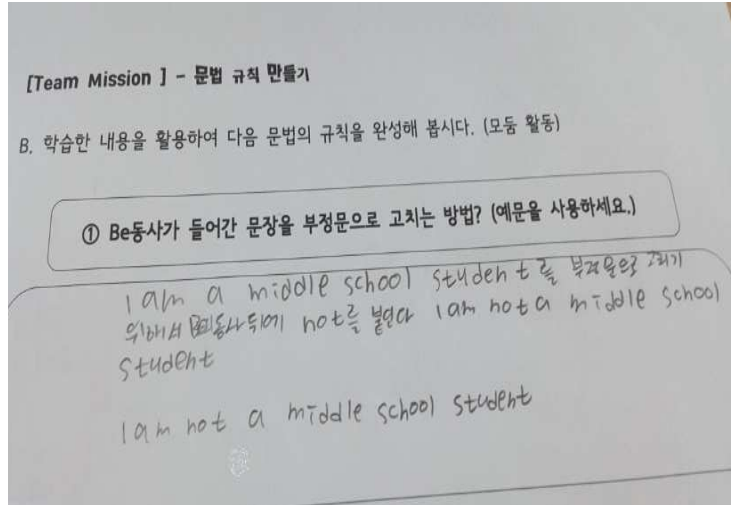 [Team Mission ] - 문법 규칙 만들기
B. 학습한 내용을 활용하여 다음 문법의 규칙을 완성해 봅시다. (모둠 활동)
① Be동사가 들어간 문장을 부정문으로 고치는 방법? (예문을 사용하세요.)
I am a middle school student를 부정문으로 고치기
위해서 동사 뒤에 not를 붙인다 I am not a middle school
student
I am not a middle school student